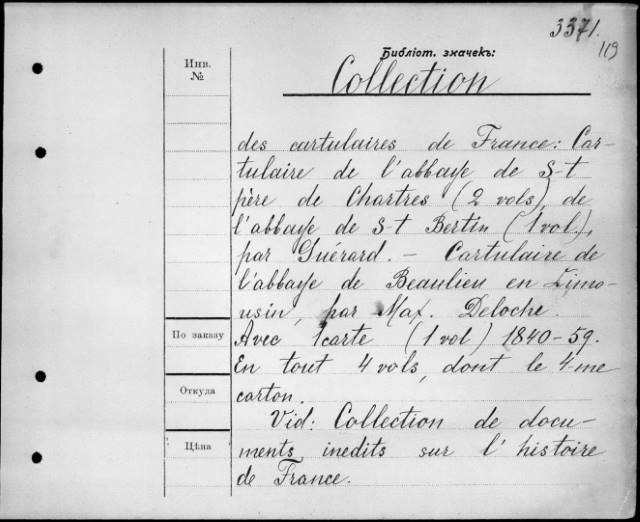 3371.
119
Библіот. значекъ:
Инв.
№
Collection
des cartulaires de France: Car-
tulaire de l'abbaye de S-t
père de Chartres (2 vols), de
l'abbaye de S-t Bertin (1 vol.),
par Guérard. – Cartulaire de
l'abbaye de Beaulieu en Limo-
usin, par Max. Deloche.
По заказу
Avec 1 carte (1 vol) 1840-59.
En tout 4 vols, dont le 4-me
Откуда
carton.
Vid: Collection de docu-
Цѣна
ments inedits sur l'histoire
de France.